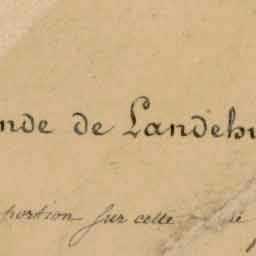 nde de Landehu
portion sur cette